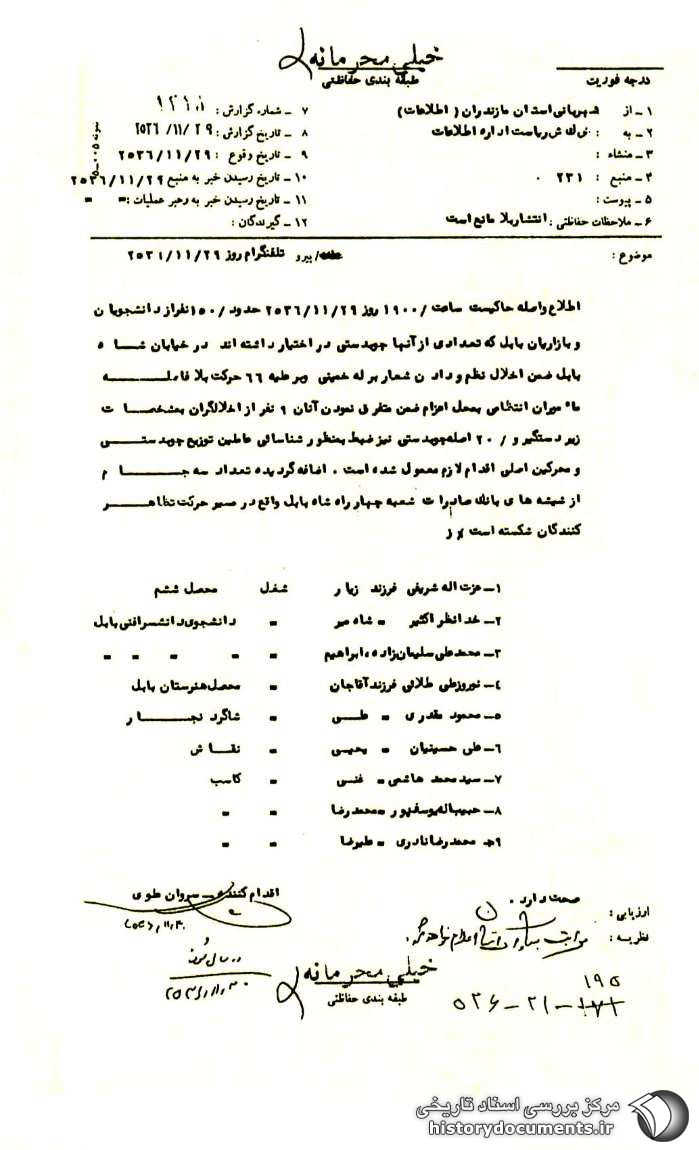 خیلی محرمانه
طبقه بندی حفاظتی
درجه فوریت
۱ــ از : شهربانی استان مازندران (اطلاعات)
۲ــ به : ریاست اداره اطلاعات
۳ــ منشاء :
۴ــ منبع : ۲۳۱ ۰
۵ــ پیوست :
۶ــ ملاحظات حفاظتی : انتشار بلا مانع است
۷ ــ شماره گزارش :
۸ ــ تاریخ گزارش : ۲۵۳۶/۱۱/۲۹
۹ ــ تاریخ وقوع : ۲۵۳۶/۱۱/۲۹
۱۰ ــ تاریخ رسیدن خبر به منبع ۲۵۳۶/۱۱/۲۹
۱۱ ــ تاریخ رسیدن خبر به رهبر عملیات : = =
۱۲ ــ گیرندگان :
نمونه ۰۰۵ــ
موضوع : /پیرو تلفنگرام روز ۲۵۳۶/۱۱/۲۹
اطلاع واصله حاکیست ساعت /۱۹۰۰ روز ۲۵۳۶/۱۱/۲۹ حدود /۱۵۰ نفر از دانشجویان
و بازاریان بابل که تعدادی از آنها چوبدستی در اختیار داشته اند در خیابان شاه
بابل ضمن اخلال نظم و دادن شعار بر له خمینی و بر علیه ۶۶ حرکت بلا فاصله
مامورین انتظامی بمحل اعزام ضمن متفرق نمودن آنان ۹ نفر از اخلالگران بمشخصات
زیر دستگیر و /۲۰ اصله چوبدستی نیز ضبط بمنظور شناسائی عاملین توزیع چوبدستی
و محرکین اصلی اقدام لازم معمول شده است . اضافه گردیده تعداد سه جام
از شیشه های بانک صادرات شعبه چهار راه شاه بابل واقع در مسیر حرکت تظاهر
کنندگان شکسته است
۱ــ عزت اله شریفی فرزند زیار شغل محصل ششم
۲ــ خدانظر اکثیر = شاه میر = دانشجوی دانشسرای فنی بابل
۳ــ محمدعلی سلیمان زاده = ابراهیم = = = = =
۴ــ نوروزعلی طلائی فرزند آقاجان = محصل هنرستان بابل
۵ــ محمود مقدری = علی = شاگرد نجار
۶ــ علی حسینیان = یحیی = نقاش
۷ــ سید محمد هاشمی = غنی = کاسب
۸ــ حبیب اله یوسفپور = محمدرضا = =
۹ــ محمدرضا نادری = علیرضا = =
صحت دارد .
ارزیابی :
نظریه :
اقدام کننده ــ سروان علوی
خیلی محرمانه
طبقه بندی حفاظتی
۱۹۵
۰۳۶ــ۲۱ــ۱۷۲
مرکز بررسی اسناد تاریخی
historydocuments.ir